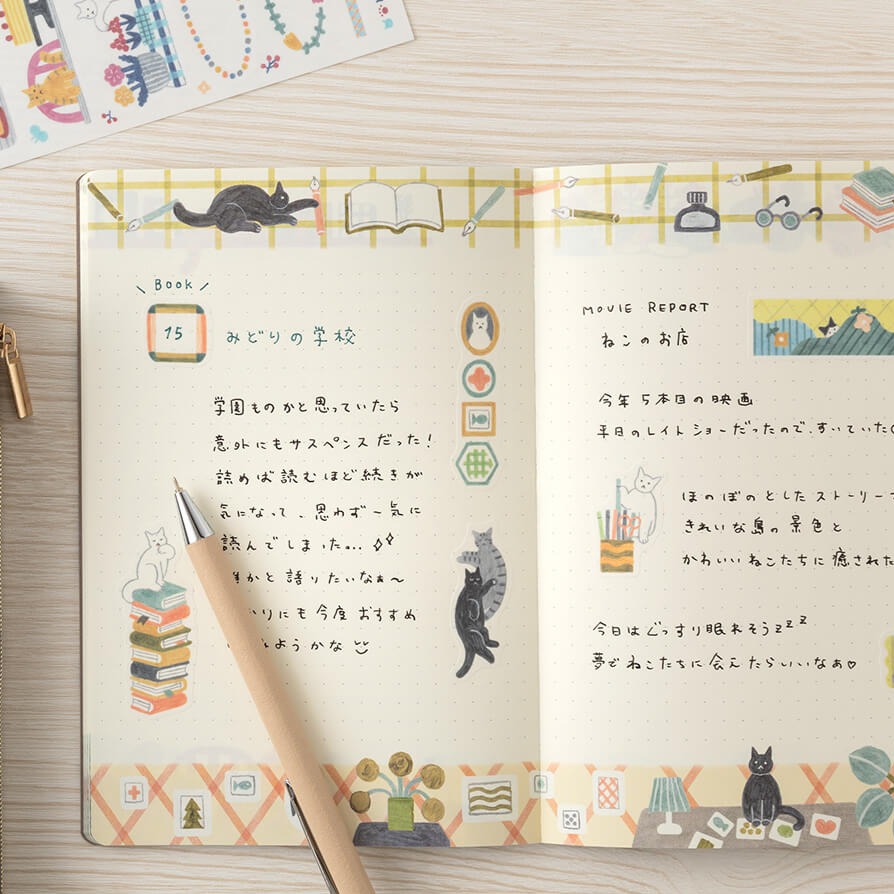 BOOK
15
みどりの学校
学園ものかと思っていたら
意外にもサスペンスだった!
読めば読むほど続きが
気になって、思わず一気に
読んでしまった…
かと語りたいなぁ〜
りにも今度おすすめ
ようかな
MOVIE REPORT
ねこのお店
今年5本目の映画
平日のレイトショーだったので、すいていた
ほのぼのとしたストーリー
きれいな島の景色と
かわいいねこたちに癒された
今日はぐっすり眠れそうzzz
夢でねこたちに会えたらいいなぁ♡